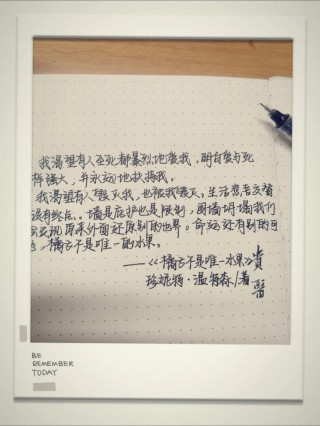 我渴望有人至死都暴烈地爱我，明白爱与死
样强大，并永远地扶持我。
我渴望有人毁灭我，也被我毁灭。生活
没有终点。墙是庇护也是限制，围墙坍塌我们
发现原来外面还别的世界。命运还有别的可
橘子不是唯一的水果。
——《橘子不是唯一水果》
珍妮特·温特森/著
BE
REMEMBER
TODAY